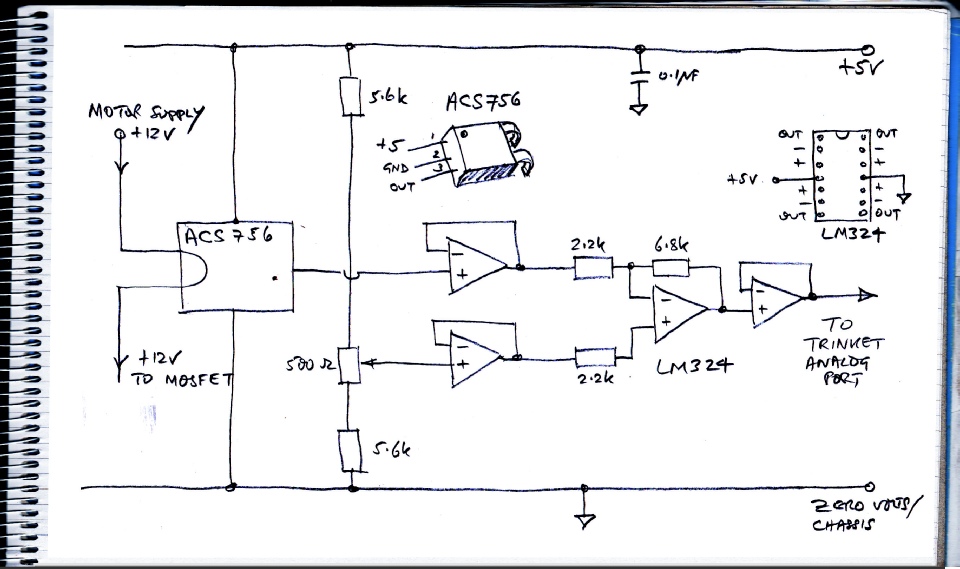 +5V
0.1µF
5.6k
ACS756
+5
GND
OUT
1
2
3
MOTOR SUPPLY
+12V
OUT
OUT
-
-
+
+
+5V
+
+
-
-
OUT
OUT
LM324
ACS756
-
+
2.2k
6.8k
-
+
-
+
500Ω
-
+
2.2k
LM324
TO
TRINKET
ANALOG
PORT
+12V
TO MOSFET
5.6k
ZERO VOLTS/
CHASSIS